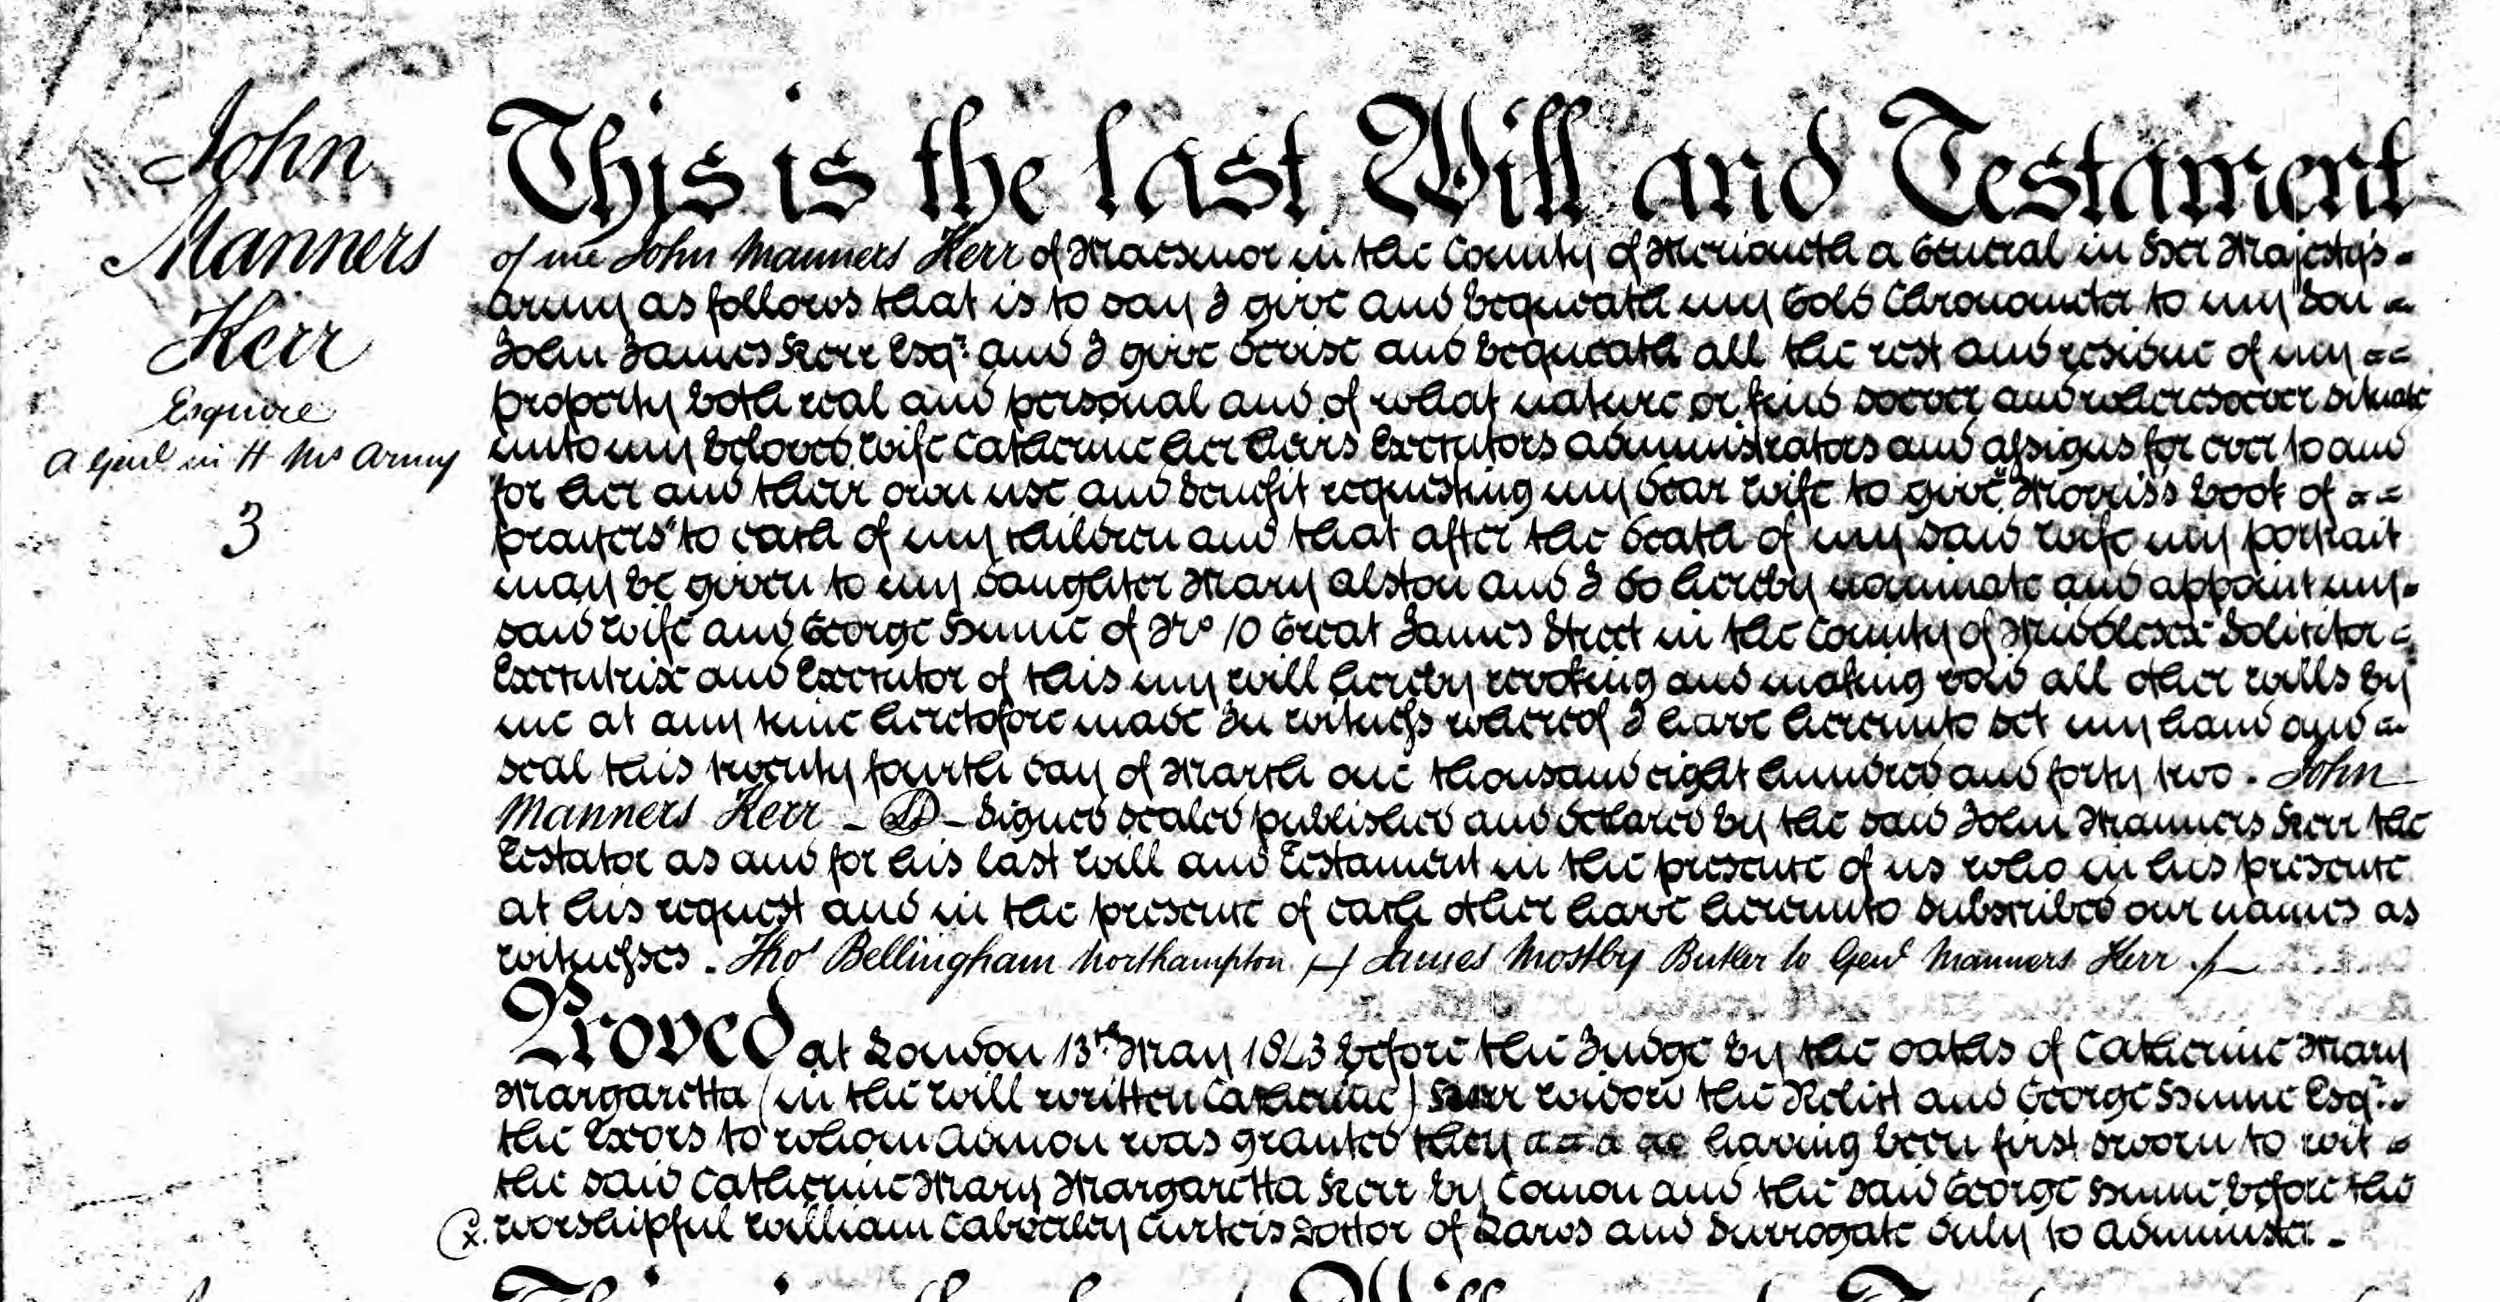 John
Manners
Kerr
Esquire
A Genl in H Ms Army
3
This is the last Will and Testament
of me John Manners Kerr of Maesmor in the County of Merioneth a General in Her Majesty's
Army as follows that is to say I give and bequeath my Gold Chronometer to my Son
John James Kerr Esqr. and I give devise and bequeath all the rest and residue of my
property both real and personal and of what nature or kind soever and wheresoever situate
unto my beloved wife Catherine her heirs Executors administrators and assigns for ever to and
for her and their own use and benefit requesting my dear wife to give "Morris's book of
prayers" to each of my children and that after the death of my said wife my portrait
may be given to my daughter Mary Alston and I do hereby nominate and appoint my
said wife and George Hume of No 10 Great James Street in the County of Middlesex Solicitor
Executrix and Executor of this my will hereby revoking and making void all other wills by
me at any time heretofore made In witness whereof I have hereunto set my hand and
seal this twenty fourth day of March one thousand eight hundred and forty two . John
Manners Kerr _ LS _ Signed sealed published and declared by the said John Manners Kerr the
Testator as and for his last Will and Testament in the presence of us who in his presence
at his request and in the presence of each other have hereunto subscribed our names as
witnesses . Thos Bellingham Northampton James Mostby Butler to Genl Manners Kerr
Proved at London 13th May 1843 before the Judge by the oaths of Catherine Mary
Margaretta (in the will written Catherine) Kerr widow the Relict and George Hume Esqr.
the Exors to whom Admon was granted they having been first sworn to wit
the said Catherine Mary Margaretta Kerr by Comon and the said George Hume before the
worshipful William Calverley Curteis Doctor of Laws and Surrogate duly to administer